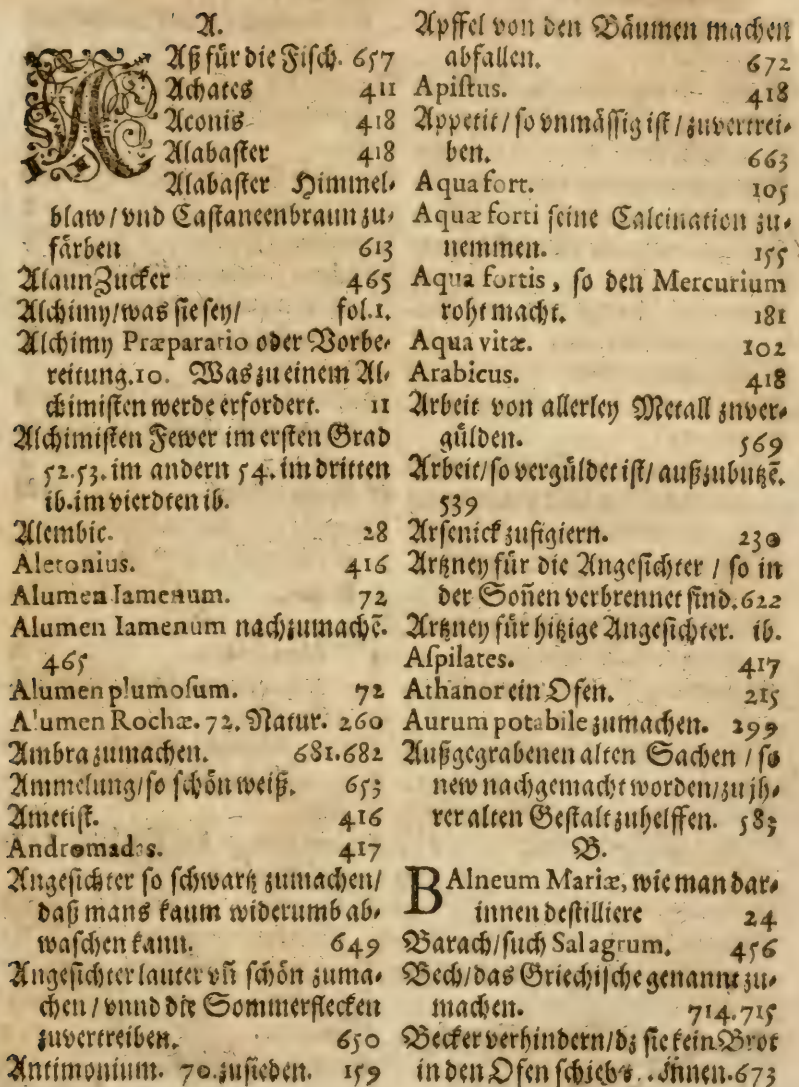 A.
Aß für die Fisch. 657
Achates 411
Aconis 418
Alabaster 418
Alabaster Himmel-
blaw/vnd Castaneenbraun zu-
färben 613
AlaunZucker 465
Alchimy/was sie sey/ fol.1.
Alchimy Præparatio oder Vorbe-
reitung.10. Was zu einem Al-
chimisten werde erfordert. 11
Alchimisten Fewer im ersten Grad
52.53.im andern 54.im dritten
ib.im vierdten ib.
Alembic. 28
Aletonius. 416
Alumen Iamenum. 72
Alumen Iamenum nachzumachẽ.
465
Alumen plumosum. 72
Alumen Rochæ. 72. Natur. 260
Ambra zumachen. 681.682
Ammelung/so schön weiß. 653
Ametist. 416
Andromades. 417
Angesichter so schwartz zumachen/
daß mans kaum widerumb ab-
waschen kann. 649
Angesichter lauter vñ schön zuma-
chen/vnnd die Sommerflecken
zuvertreiben. 650
Antimonium. 70.zusieden. 159
Apffel von den Bäumen machen
abfallen. 672
Apistus. 418
Appetit/so vnmässig ist/zuvertrei-
ben. 663
Aqua fort. 105
Aquæ forti seine Calcination zu-
nemmen. 155
Aqua fortis, so den Mercurium
roht macht. 181
Aqua vitæ. 102
Arabicus. 418
Arbeit von allerley Metall zuver-
gülden. 569
Arbeit/so vergüldet ist/außzubutzẽ.
539
Arsenick zufigiern. 230
Artzney für die Angesichter / so in
der Soñen verbrennet sind.622
Artzney für hitzige Angesichter. ib.
Aspilates. 417
Athanor ein Ofen. 215
Aurum potabile zumachen. 299
Außgegrabenen alten Sachen / so
new nachgemacht worden/zu jh-
rer alten Gestalt zuhelffen. 583
B.
BAlneum Mariæ, wie man dar-
innen destilliere 24
Barach/such Sal agrum. 456
Bech/das Griechische genannt zu-
machen. 714.715
Becker verhindern/dz sie kein Brot
in den Ofen schieben können.673